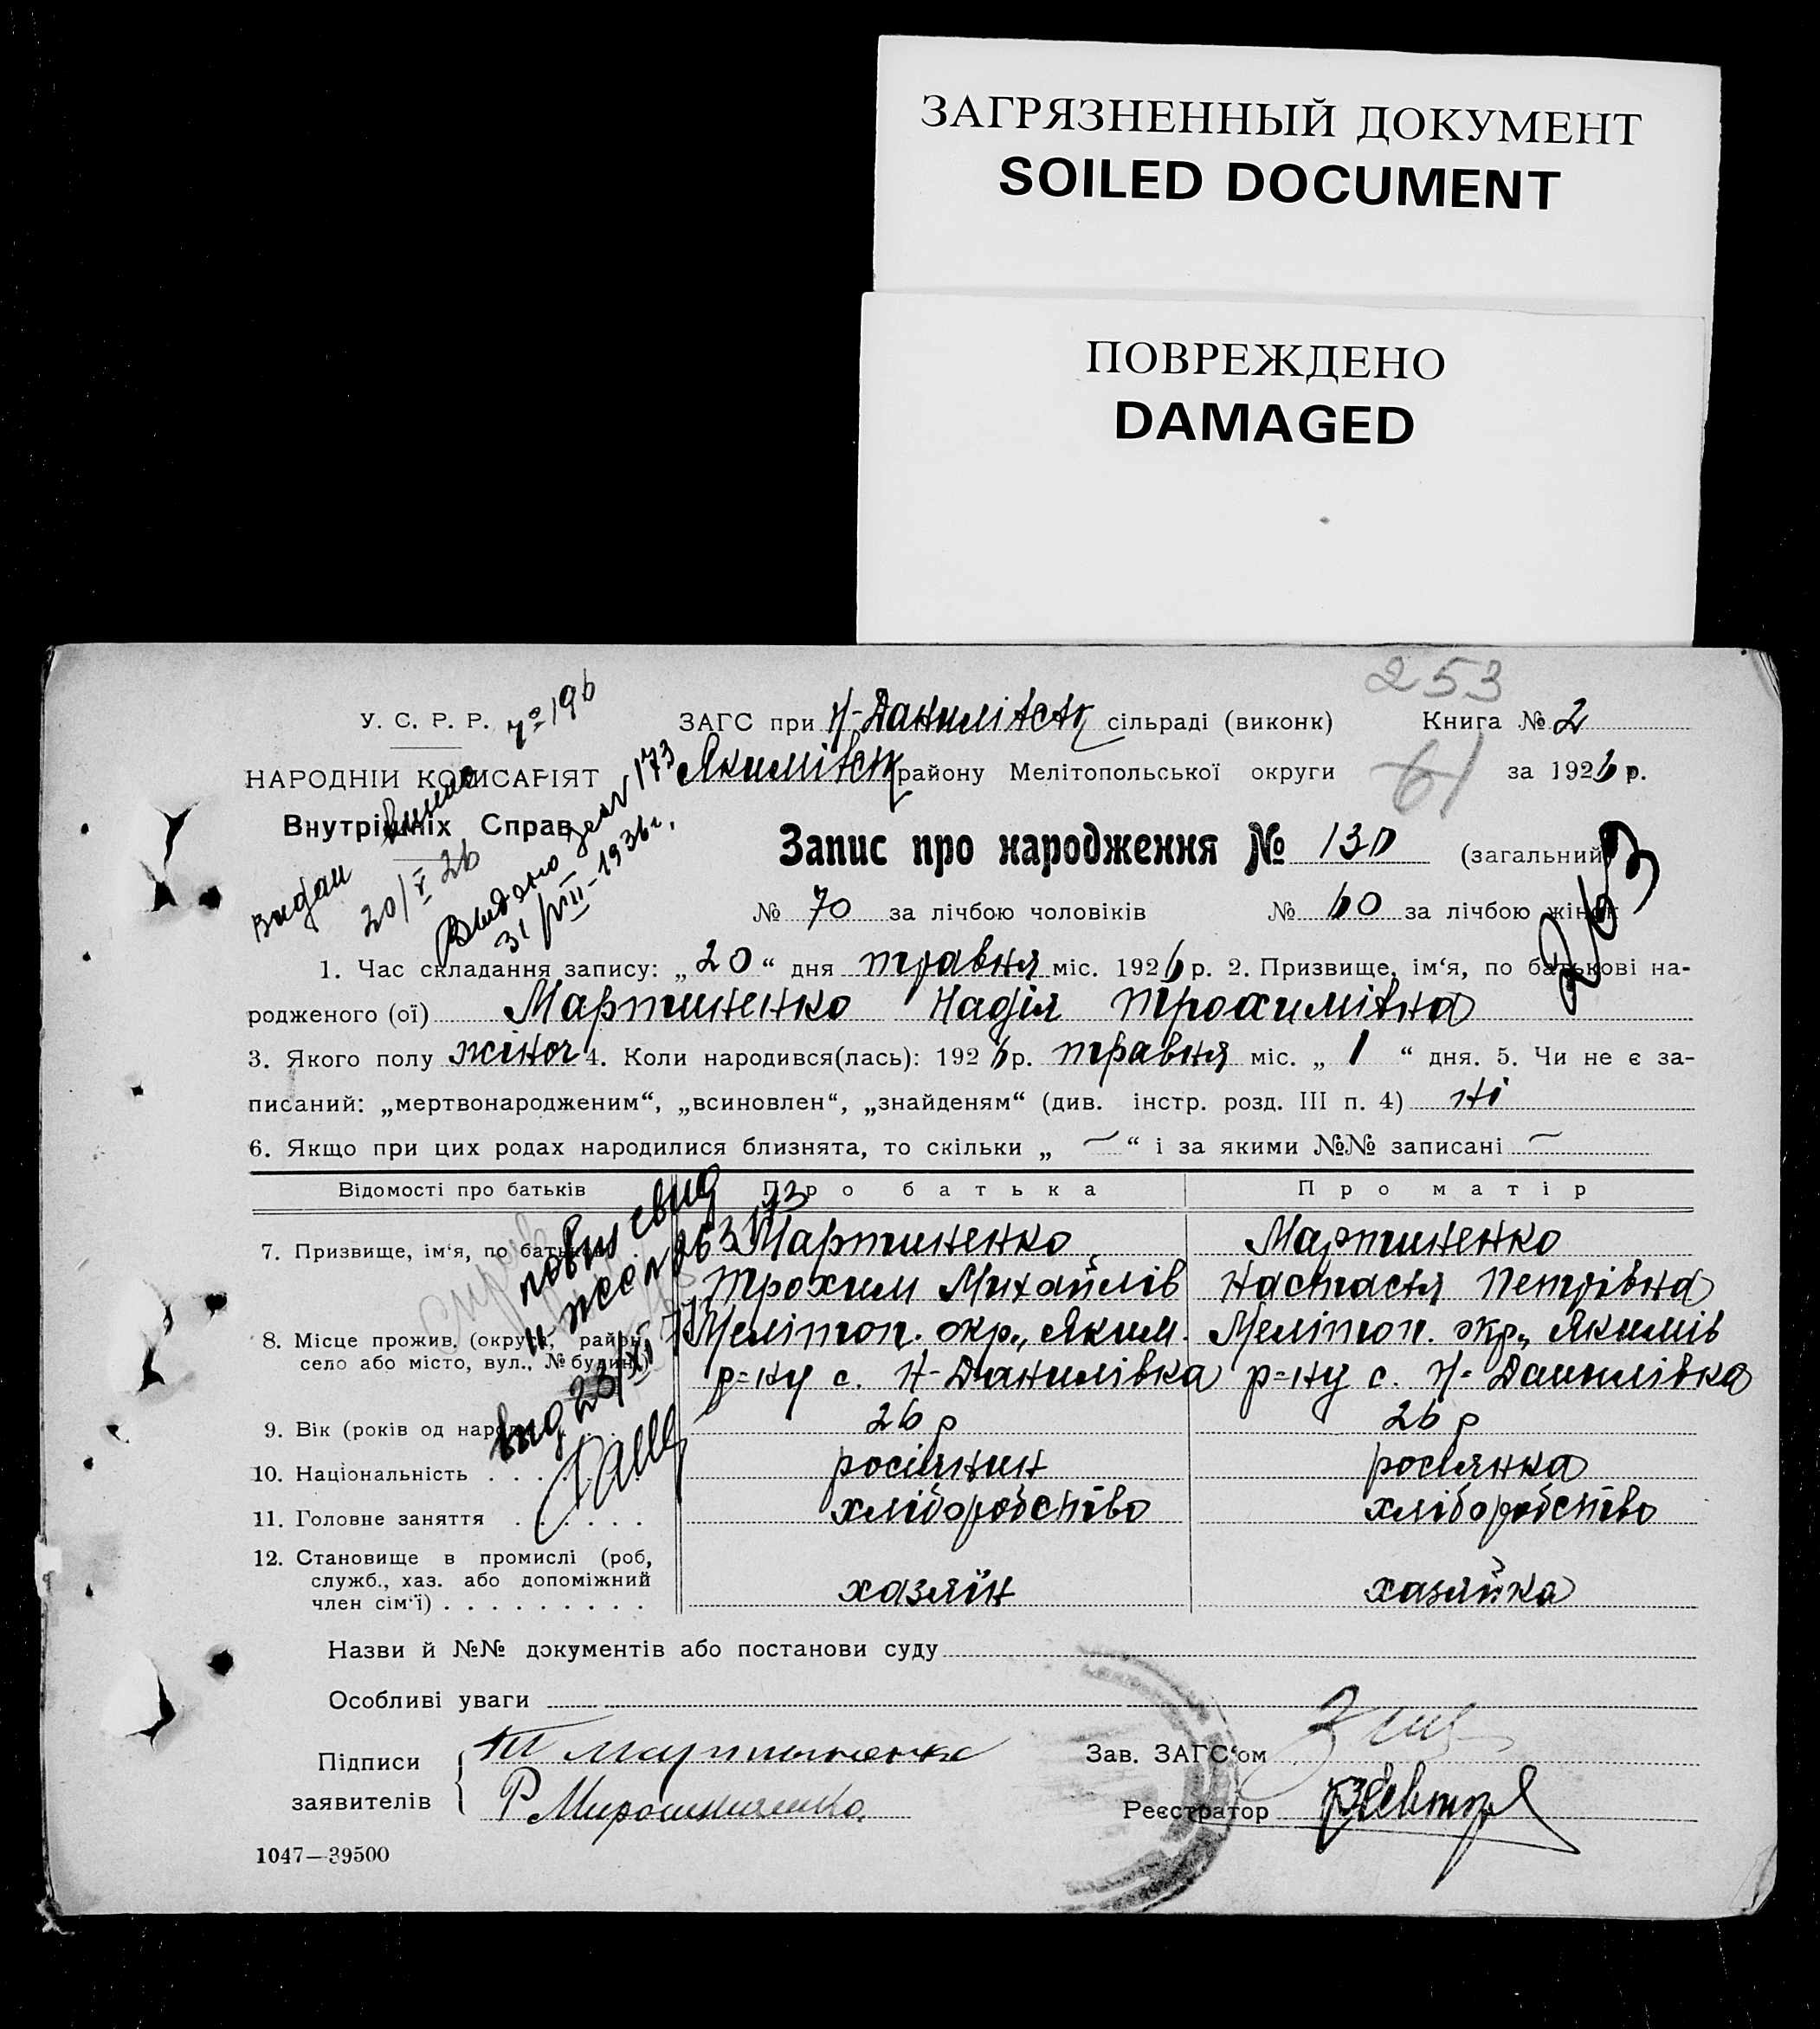 ЗАГРЯЗНЕННЫЙ ДОКУМЕНТ
SOILED DOCUMENT
ПОВРЕЖДЕНО
DAMAGED
253
У. С. Р. Р.
ЗАГС при Н-Данилівськ сільраді (виконк) Книга № 2
НАРОДНІЙ КОМИСАРІЯТ
Якимівськ району Мелітопольської округи за 1926 р.
61
Внутрішніх Справ
видан
20/V 26
Выдано 173
31/VIII-1936 г.
Запис про народження № 130 (загальний)
263
№ 70 за лічбою чоловіків № 60 за лічбою жінок
1. Час складання запису: „20“ дня травня міс. 1926 р. 2. Призвище, ім‘я, по батькові на-
родженого (ої) Мартиненко Надія Трохимівна
3. Якого полу жіноч 4. Коли народився(лась): 1926 р. травня міс. „ 1 “ дня. 5. Чи не є за-
писаний: „мертвонародженим“, „всиновлен“, „знайденям“ (див. інстр. розд. III п. 4) ні
6. Якщо при цих родах народилися близнята, то скільки „ — “ і за якими №№ записані —
Відомості про батьків Про батька Про матір
7. Призвище, ім‘я, по батькові Мартиненко Мартиненко
Трохим Михайлів Настасія Петрівна
8. Місце прожив. (округа, район, Мелітоп. окр., Яким. Мелітоп. окр., Якимів
село або місто, вул., № будин.) р=ну с. Н-Данилівка р=ну с. Н-Данилівка
9. Вік (років од народж.) 26 р 26 р
10. Національність . . . . . . росіянин росіянка
11. Головне заняття . . . . . . хліборобство хліборобство
12. Становище в промислі (роб,
служб., хаз. або допоміжний
член сім‘ї) . . . . . . . . . хазяїн хазяйка
Назви й №№ документів або постанови суду
Особливі уваги
Підписи Т Мартыненко Зав. ЗАГС‘ом
заявителів Р Мирошниченко Реєстратор
1047—39500